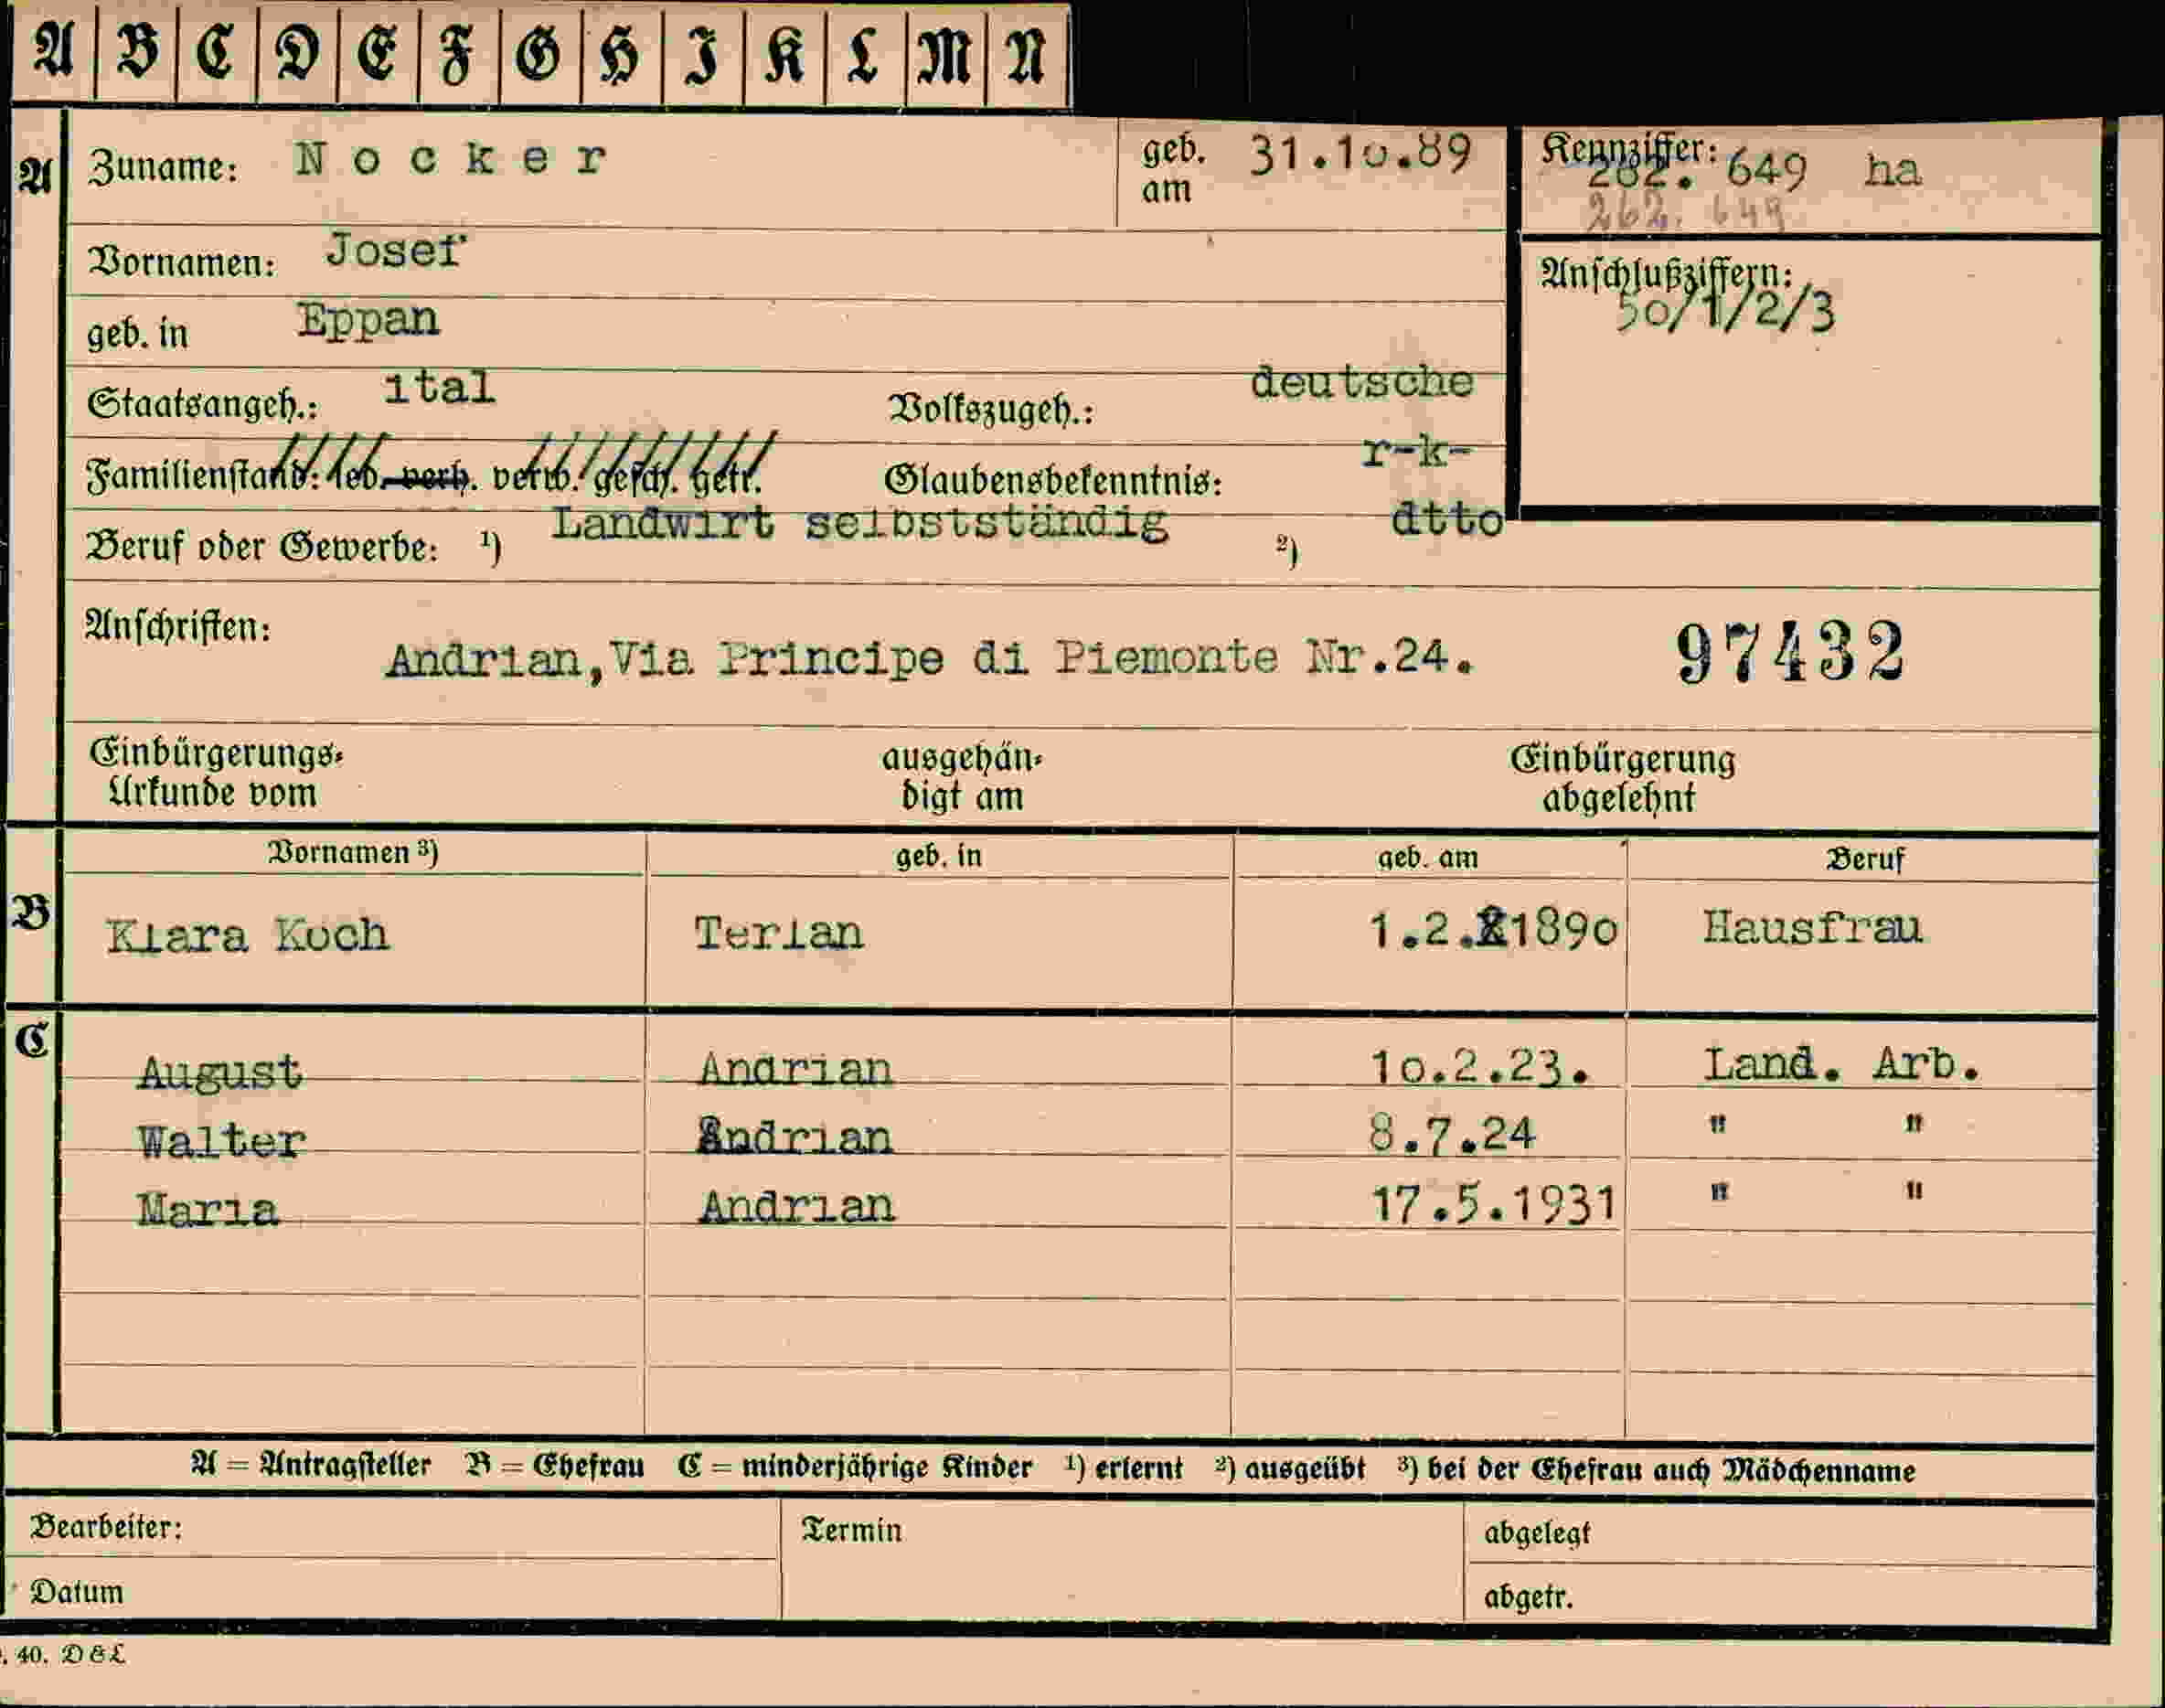 A B C D E F G H I K L M N
A Zuname: Nocker geb. am 31.10.89 Kennziffer: 262. 649 ha
262. 649
Vornamen: Josef Anschlußziffern:
50/1/2/3
geb. in Eppan
Staatsangeh.: ital Volkszugeh.: deutsche
Familienstand: led. verh. verw. gesch. getr. Glaubensbekenntnis: r-k-
Beruf oder Gewerbe: ¹) Landwirt selbstständig ²) dtto
Anschriften: Andrian, Via Principe di Piemonte Nr.24. 97432
Einbürgerungs- ausgehän- Einbürgerung
Urkunde vom digt am abgelehnt
Vornamen ³) geb. in geb. am Beruf
B Klara Koch Terlan 1.2.1890 Hausfrau
C August Andrian 10.2.23. Land. Arb.
Walter Andrian 8.7.24 " "
Maria Andrian 17.5.1931 " "
A = Antragsteller B = Ehefrau C = minderjährige Kinder ¹) erlernt ²) ausgeübt ³) bei der Ehefrau auch Mädchenname
Bearbeiter: Termin abgelegt
Datum abgetr.
. 40. D&L